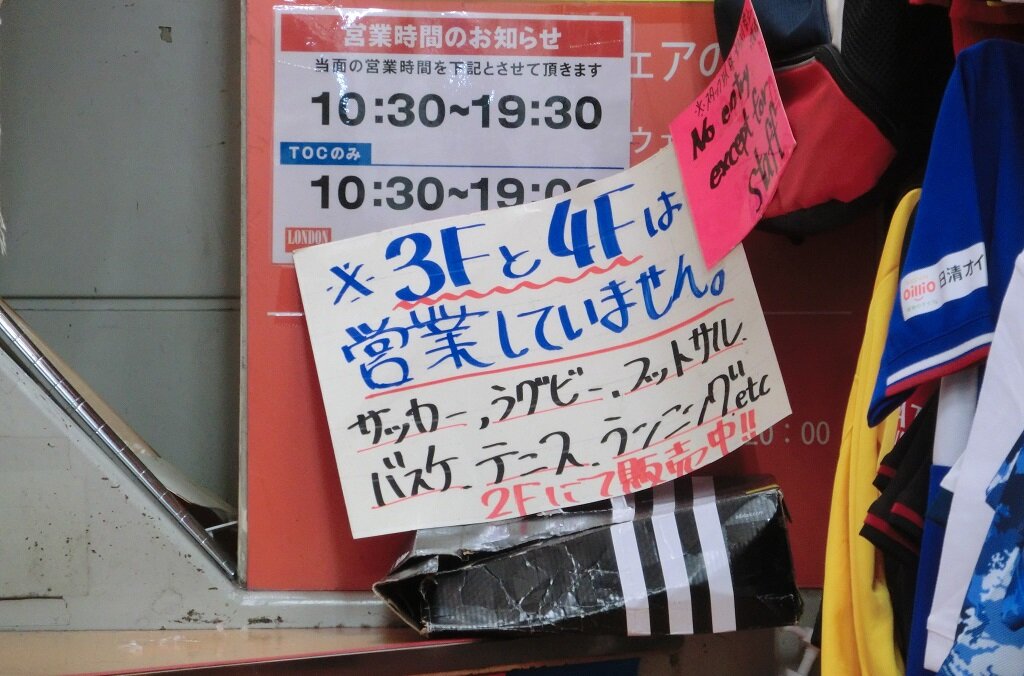 営業時間のお知らせ
当面の営業時間を下記とさせて頂きます
10:30~19:30
TOCのみ
10:30~19:00
LONDON
ェアの
ウェ
No entry
except for
Staff
※3Fと4Fは
営業していません。
サッカー,ラグビー,フットサル、
バスケ、テニス、ランニングetc
2Fにて販売中!!
20:00
oillio
日清オイ